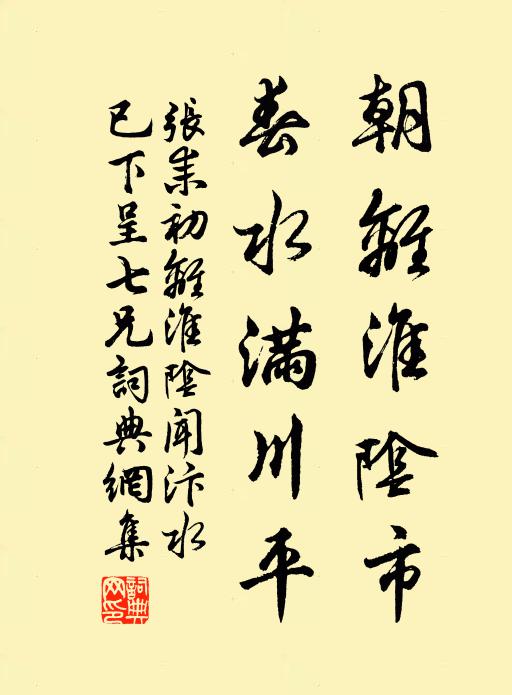 朝離淮陰市
春水滿川平
張耒初離淮陰聞汴水
已下呈七兄詞典網集